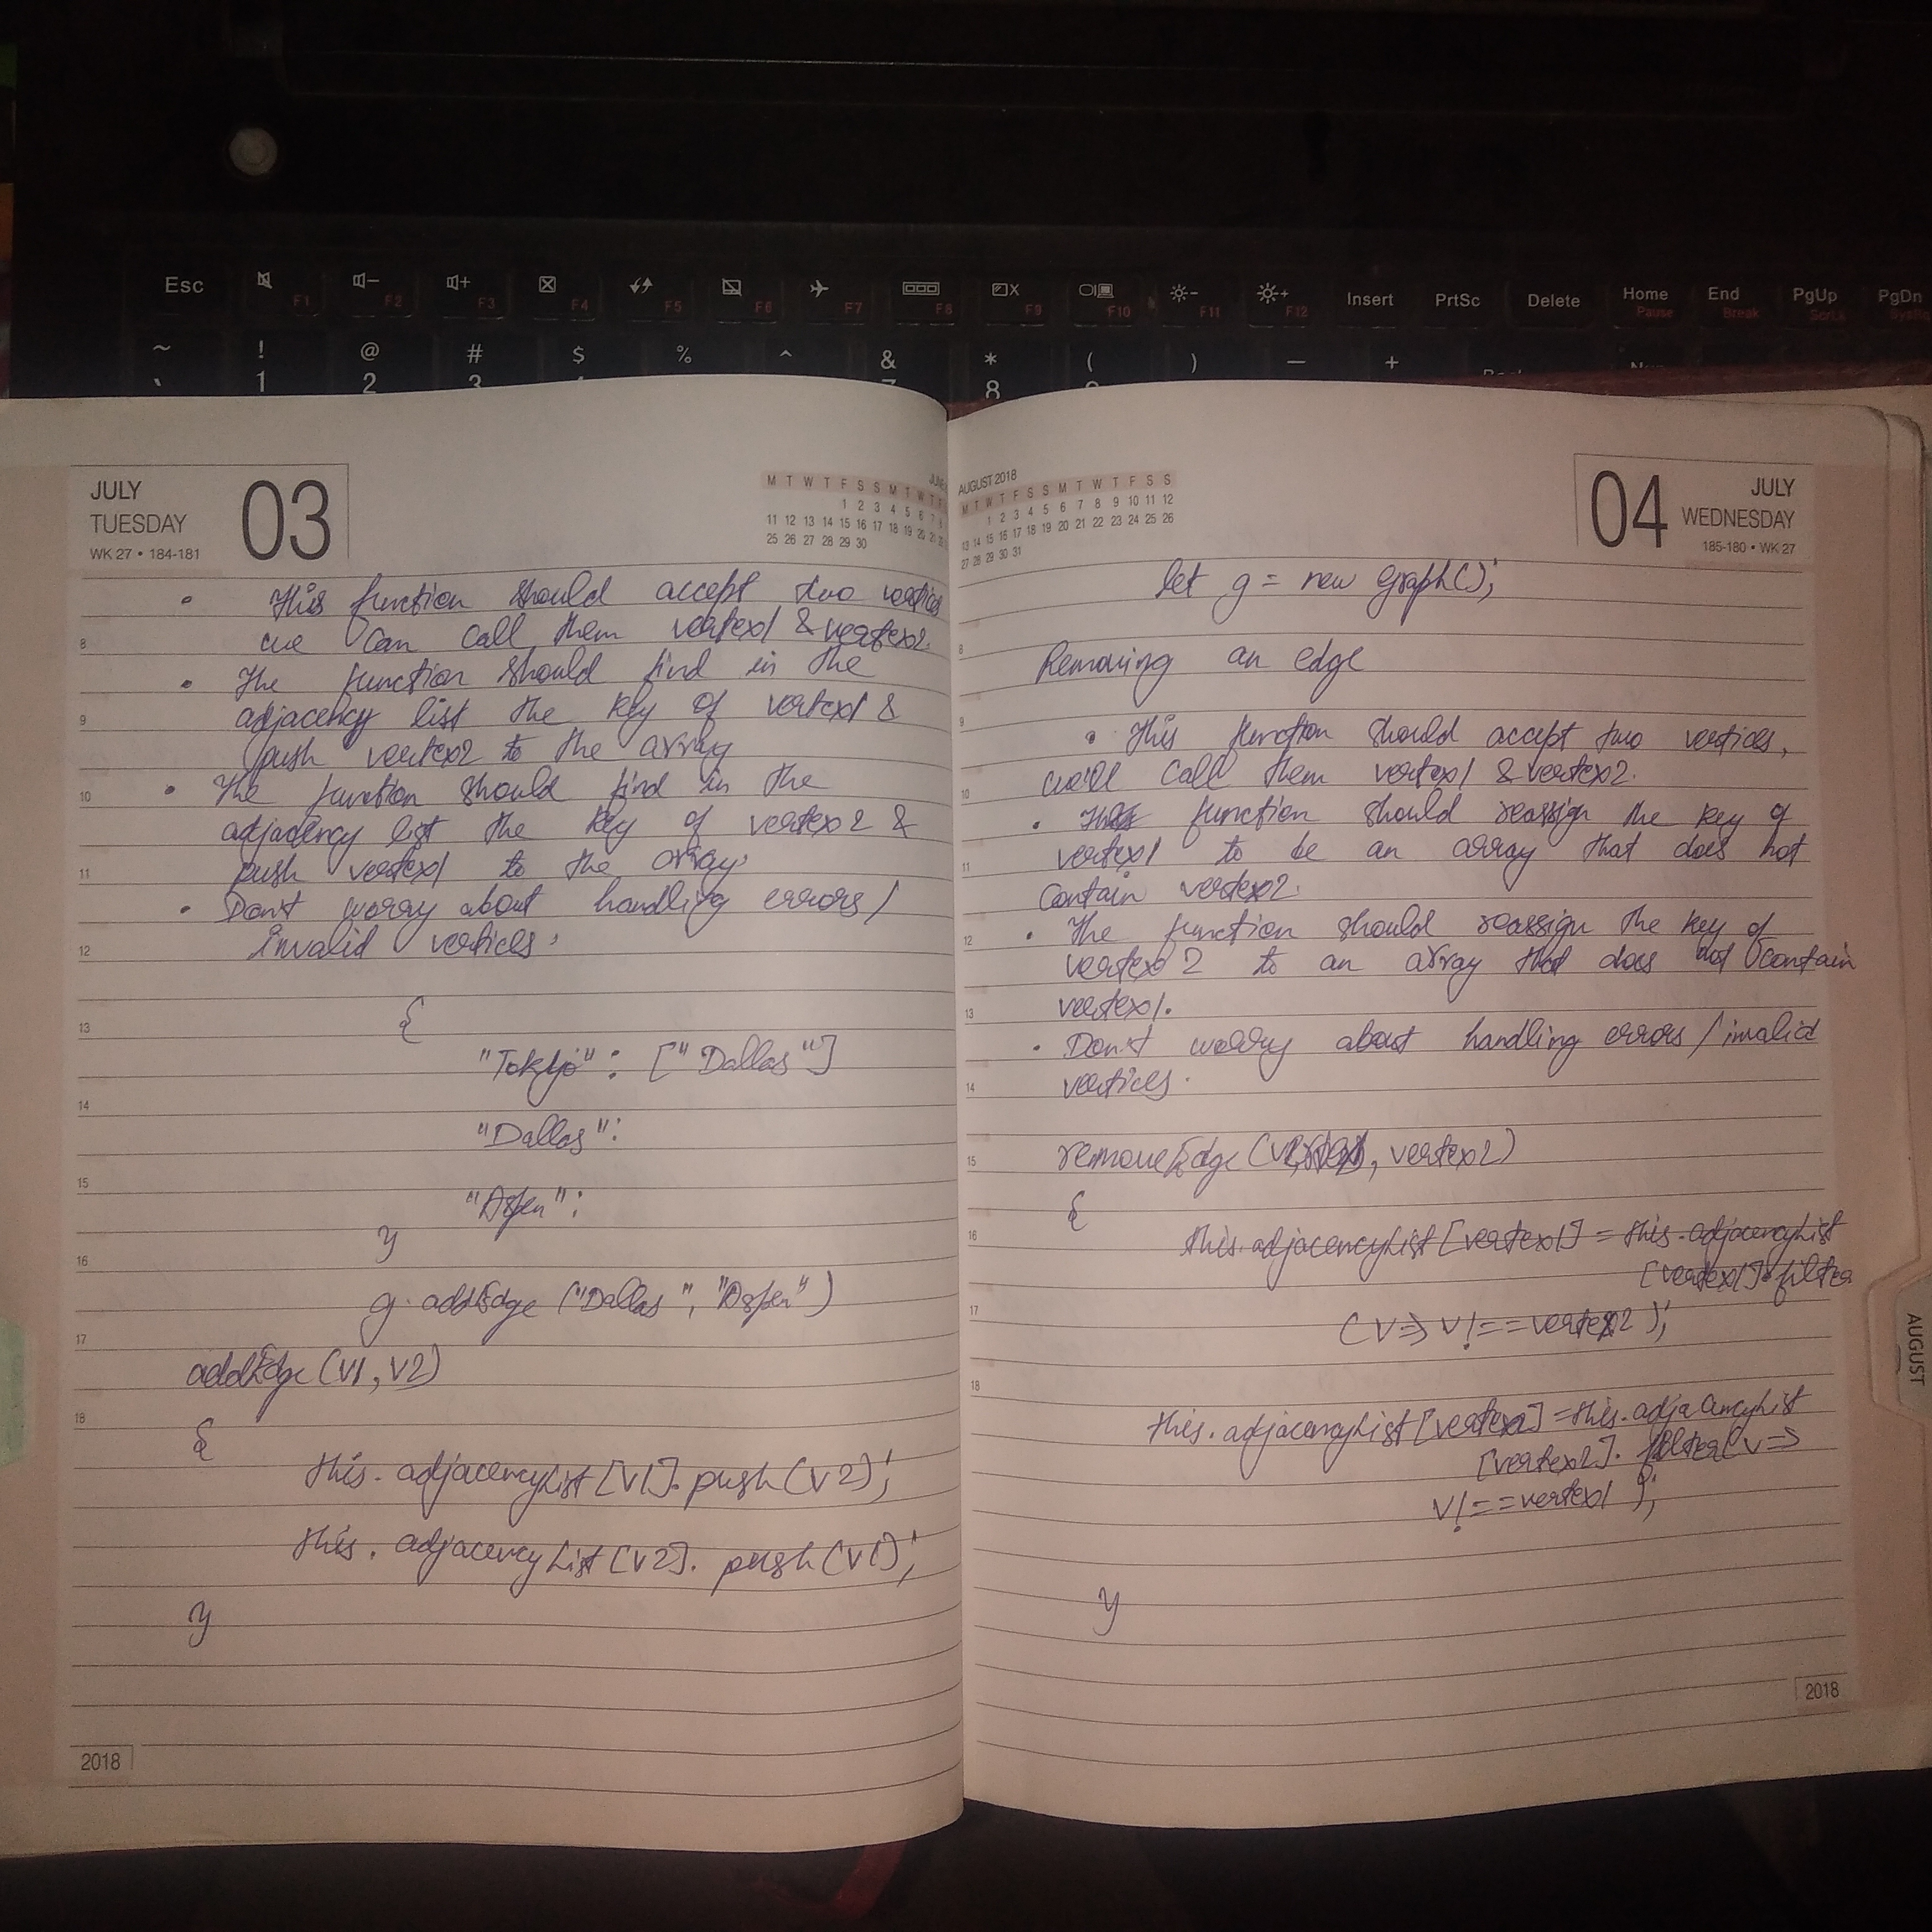 Esc
F1
F2
F3
F4
F5
F6
F7
F8
F9
F10
F11
F12
Insert
PrtSc
Delete
Home
Pause
End
Break
PgUp
PgDn
~ ! @ # $ % ^ & * ( ) — +
1 2 3 8
JULY
TUESDAY
WK 27 • 184-181
03
M T W T F S S M T W T F
1 2 3 4 5 6 7 8
11 12 13 14 15 16 17 18 19 20 21
25 26 27 28 29 30
• This function should accept two vertices
we can call them vertex1 & vertex2.
• The function should find in the
adjacency list the key of vertex1 &
push vertex2 to the array
• The function should find in the
adjacency list the key of vertex2 &
push vertex1 to the array.
• Don't worry about handling errors/
invalid vertices.
{
"Tokyo": ["Dallas"]
"Dallas":
"Aspen":
}
g.addEdge ("Dallas", "Aspen")
addEdge (V1, V2)
{
this.adjacencyList [V1].push (V2);
this.adjacencyList [V2].push (V1);
}
8
9
10
11
12
13
14
15
16
17
18
2018
AUGUST 2018
M T W T F S S M T W T F S S
1 2 3 4 5 6 7 8 9 10 11 12
13 14 15 16 17 18 19 20 21 22 23 24 25 26
27 28 29 30 31
04
JULY
WEDNESDAY
185-180 • WK 27
let g = new Graph();
Removing an edge
• This function should accept two vertices,
we'll call them vertex1 & vertex2.
• function should reassign the key of
vertex1 to be an array that does not
contain vertex2.
• The function should reassign the key of
vertex2 to an array that does not contain
vertex1.
• Don't worry about handling errors/invalid
vertices.
removeEdge ( , vertex2)
{
this.adjacencyList [vertex1] = this.adjacencyList
[vertex1].filter
(V => V!==vertex2);
this.adjacencyList [vertex2] = this.adjacencyList
[vertex2].filter(V =>
V!==vertex1);
}
8
9
10
11
12
13
14
15
16
17
18
2018
AUGUST